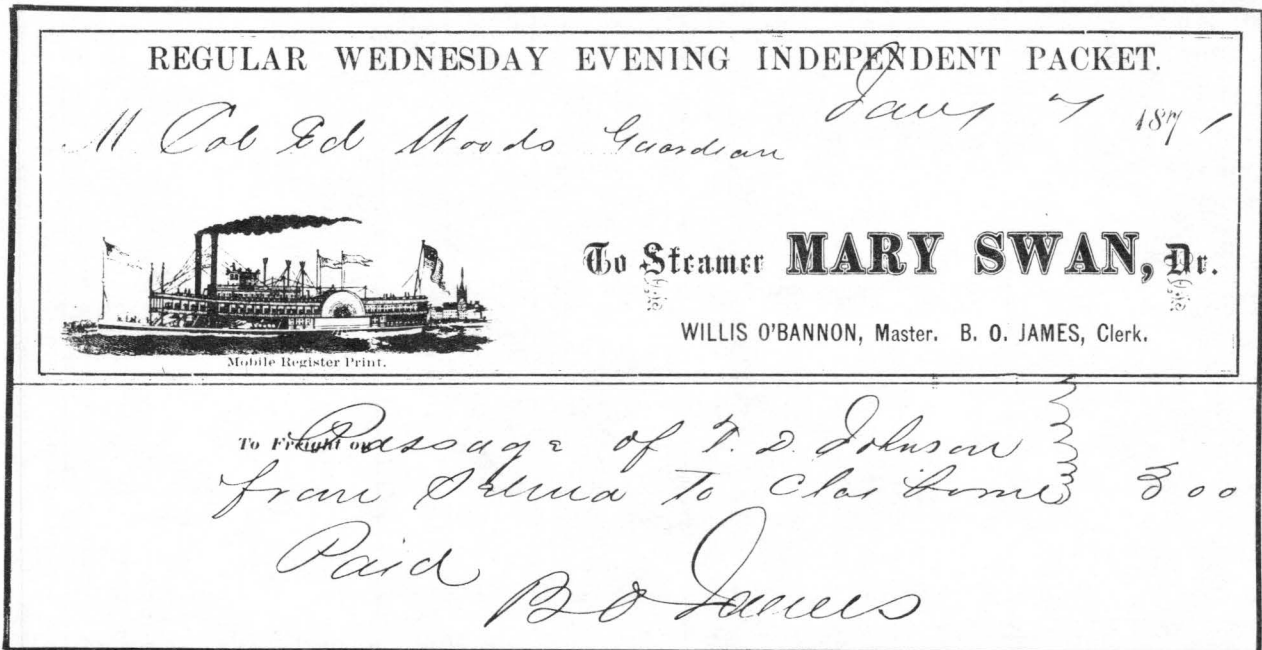 REGULAR WEDNESDAY EVENING INDEPENDENT PACKET.
Jany 7 1871
M Col Ed Woods Guardian
To Steamer MARY SWAN, Dr.
WILLIS O'BANNON, Master. B. O. JAMES, Clerk.
Mobile Register Print.
To Freight on Passage of T. D. Johnson
from Selma to Claiborne 3 00
Paid
B O James